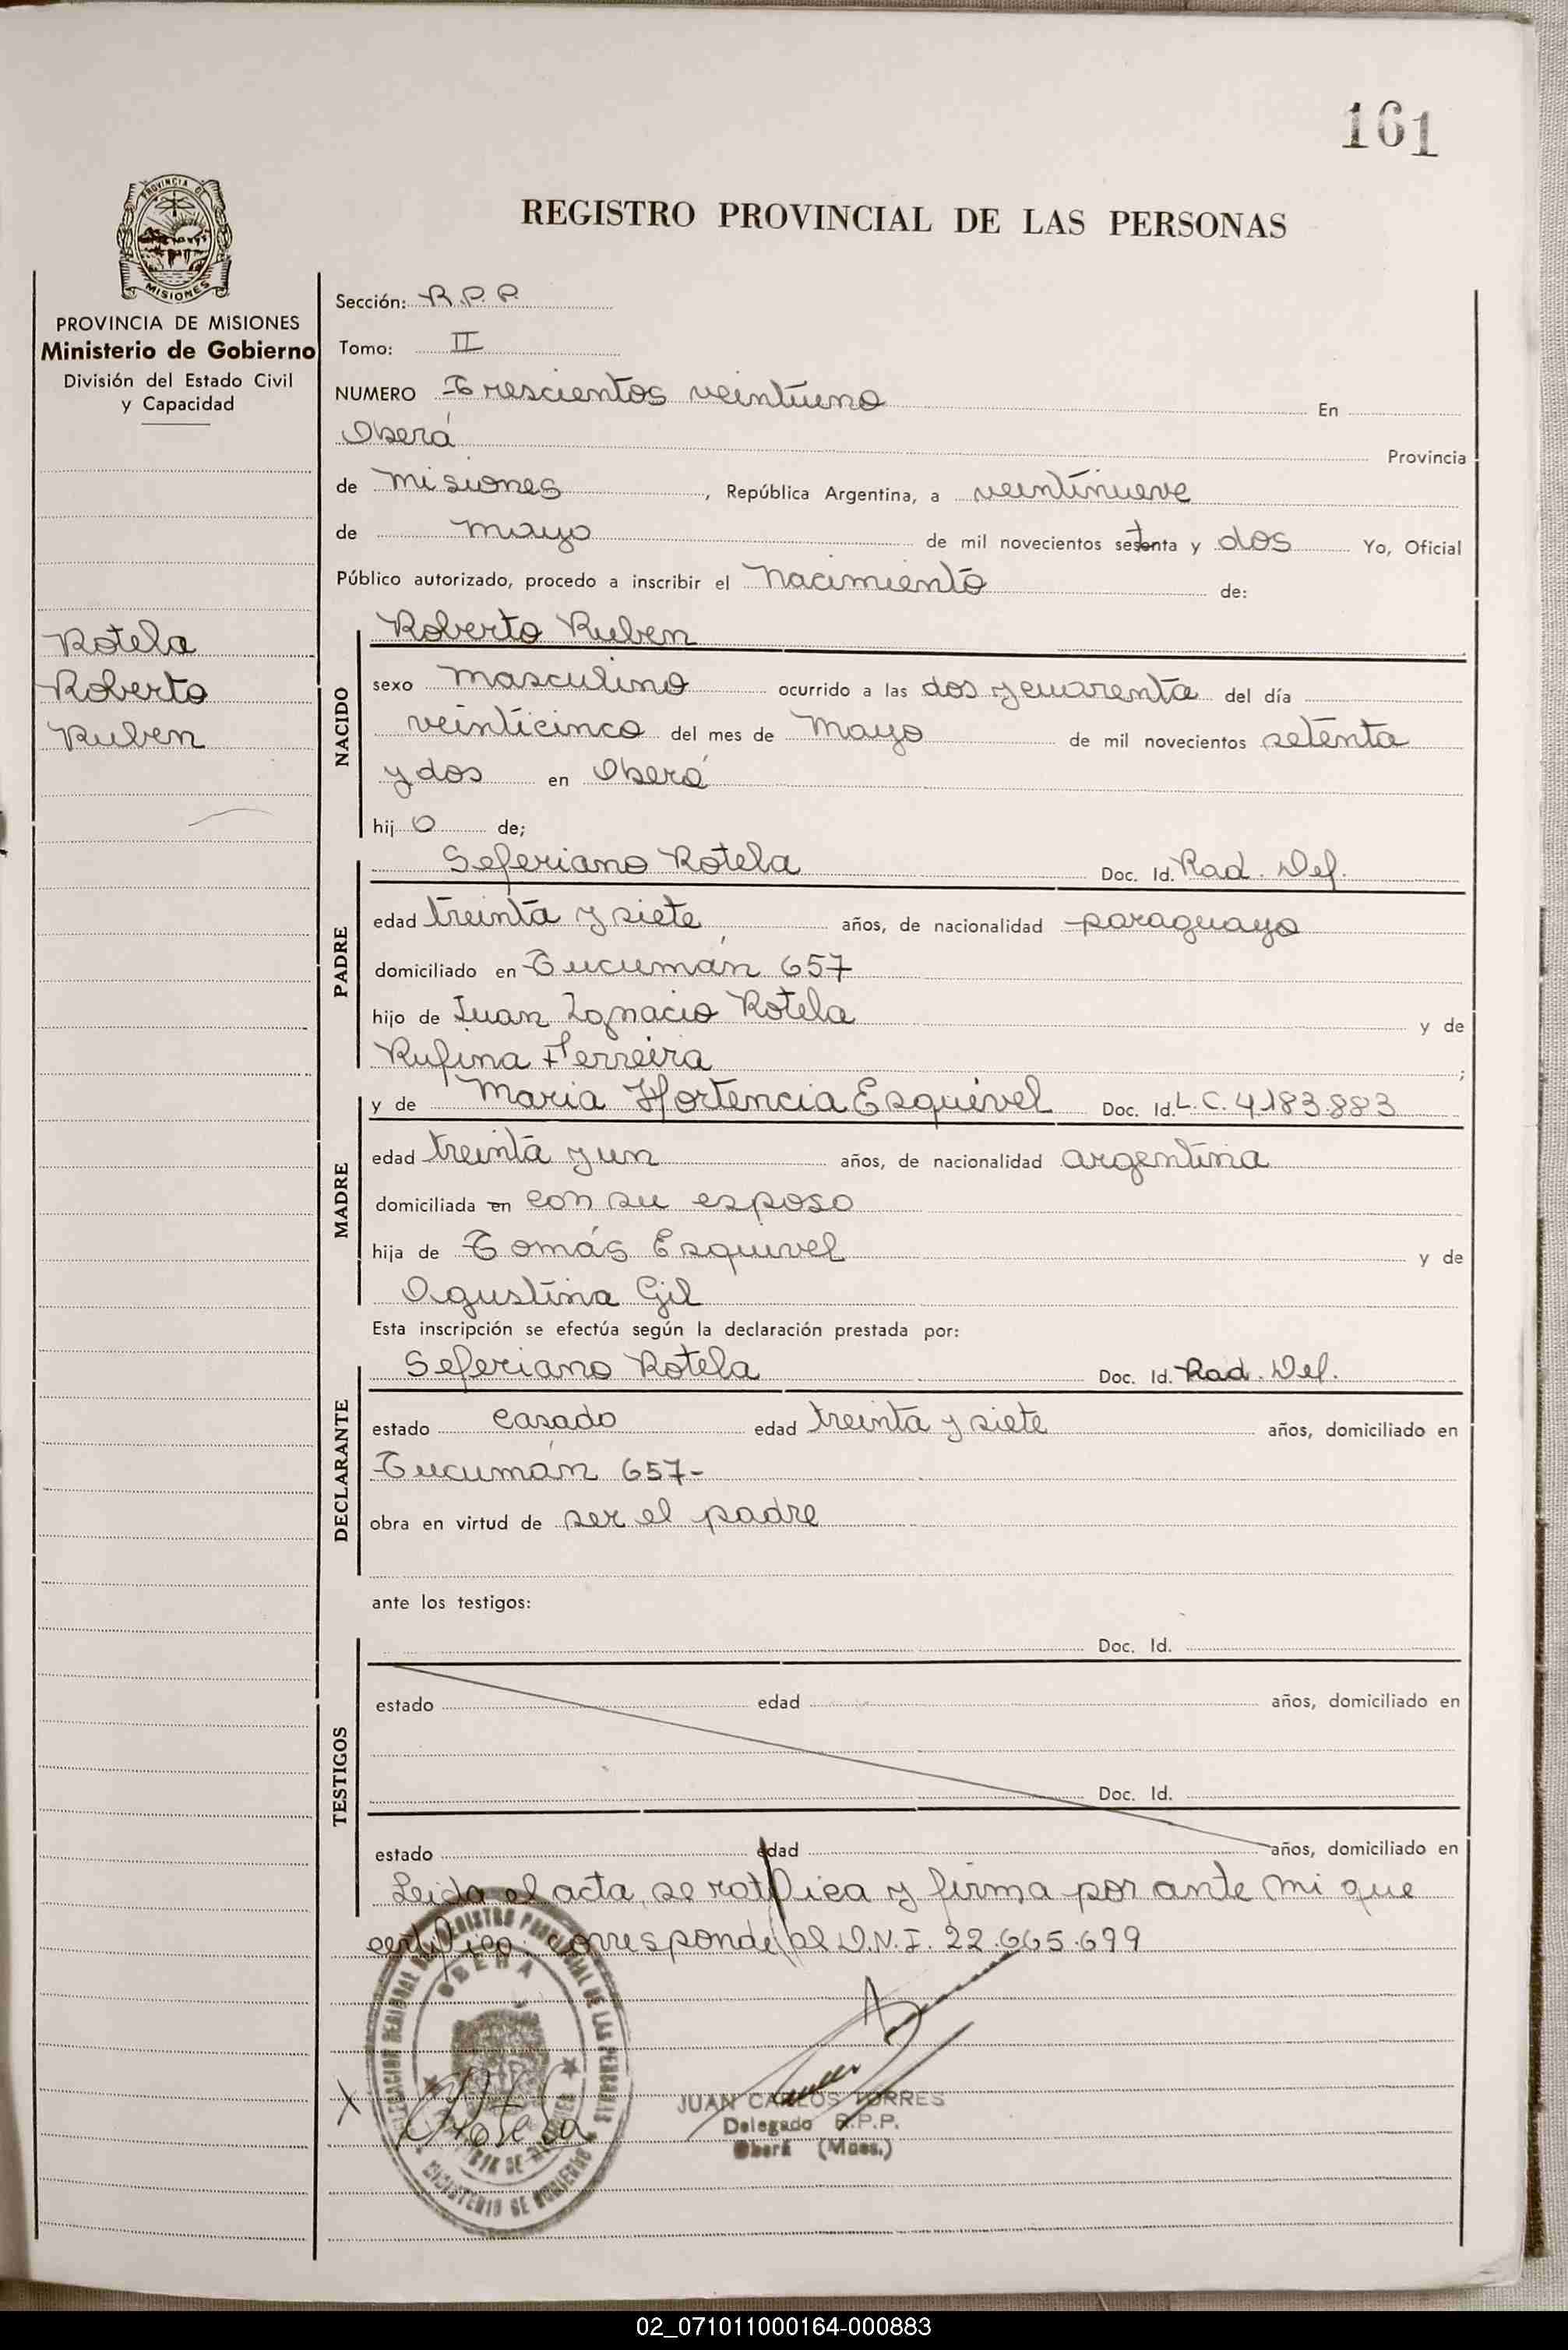 161
REGISTRO PROVINCIAL DE LAS PERSONAS
PROVINCIA DE
MISIONES
PROVINCIA DE MISIONES
Ministerio de Gobierno
División del Estado Civil
y Capacidad
Rotela
Roberto
Ruben
Sección: R.P.P.
Tomo: II
NUMERO Trescientos veintiuno En
Oberá Provincia
de Misiones, República Argentina, a veintinueve
de Mayo de mil novecientos setenta y dos Yo, Oficial
Público autorizado, procedo a inscribir el Nacimiento de:
NACIDO
Roberto Ruben
sexo Masculino ocurrido a las dos y cuarenta del día
veinticinco del mes de Mayo de mil novecientos setenta
y dos en Oberá
hijo de;
PADRE
Seferiano Rotela Doc. Id. Rad. Def.
edad treinta y siete años, de nacionalidad paraguayo
domiciliado en Tucumán 657
hijo de Juan Ignacio Rotela y de
Rufina Ferreira;
MADRE
y de Maria Hortencia Esquivel Doc. Id. L.C. 4.183.883
edad treinta y un años, de nacionalidad argentina
domiciliada en con su esposo
hija de Tomás Esquivel y de
Agustina Gil
Esta inscripción se efectúa según la declaración prestada por:
DECLARANTE
Seferiano Rotela Doc. Id. Rad. Def.
estado casado edad treinta y siete años, domiciliado en
Tucumán 657-
obra en virtud de ser el padre
ante los testigos:
TESTIGOS
Doc. Id.
estado edad años, domiciliado en
Doc. Id.
estado edad años, domiciliado en
Leida el acta, se ratifica y firma por ante mi que
certifico. Corresponde al D.N.I. 22.665.699
REGISTRO PROVINCIAL DE LAS PERSONAS
OBERA
MINISTERIO DE GOBIERNO
X Rotela
JUAN CARLOS TORRES
Delegado R.P.P.
Oberá (Mnes.)
02_071011000164-000883